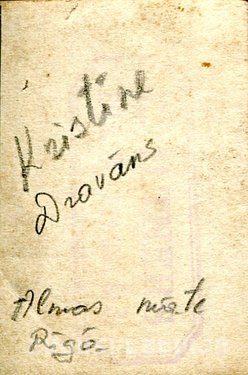 Kristine
Dravāns
Almas māte
Rīgā